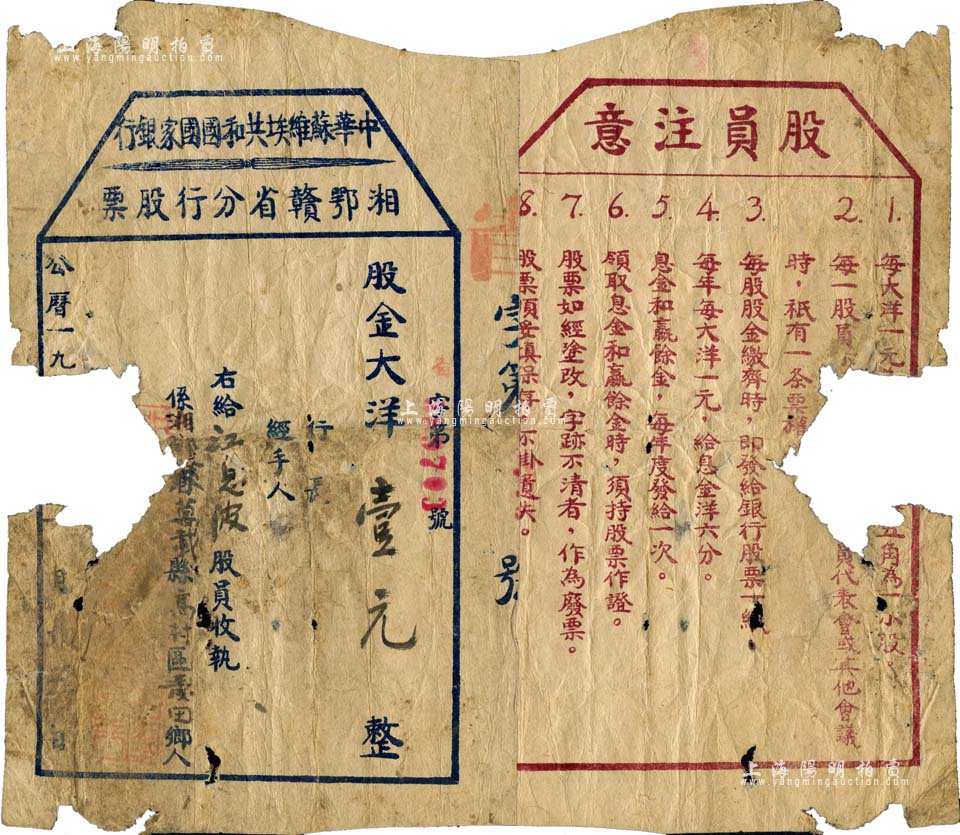 上海陽明拍賣
www.yangmingauction.com
股員注意
1. 每大洋一元
五角為一小股。
2. 每一股員
員代表會或其他會議
時，祇有一条票權
3. 每股股金繳齊時，即發給銀行股票一紙。
4. 每年每大洋一元，給息金洋六分。
5. 息金和贏餘金，每年度發給一次。
6. 領取息金和贏餘金時，須持股票作證。
7. 股票如經塗改，字跡不清者，作為廢票。
8. 股票須妥填保存，不掛遺失。
字第
號
中華蘇維埃共和國國家銀行
湘鄂贛省分行股票
字第 5703 號
股金大洋壹元整
行長
經手人
右給江見波股員收執
係湘鄂贛省萬載縣高村區 田鄉人
公曆一九
月
日
上海陽明拍賣
www.yangmingauction.com
上海陽明拍賣
www.yangmingauction.com